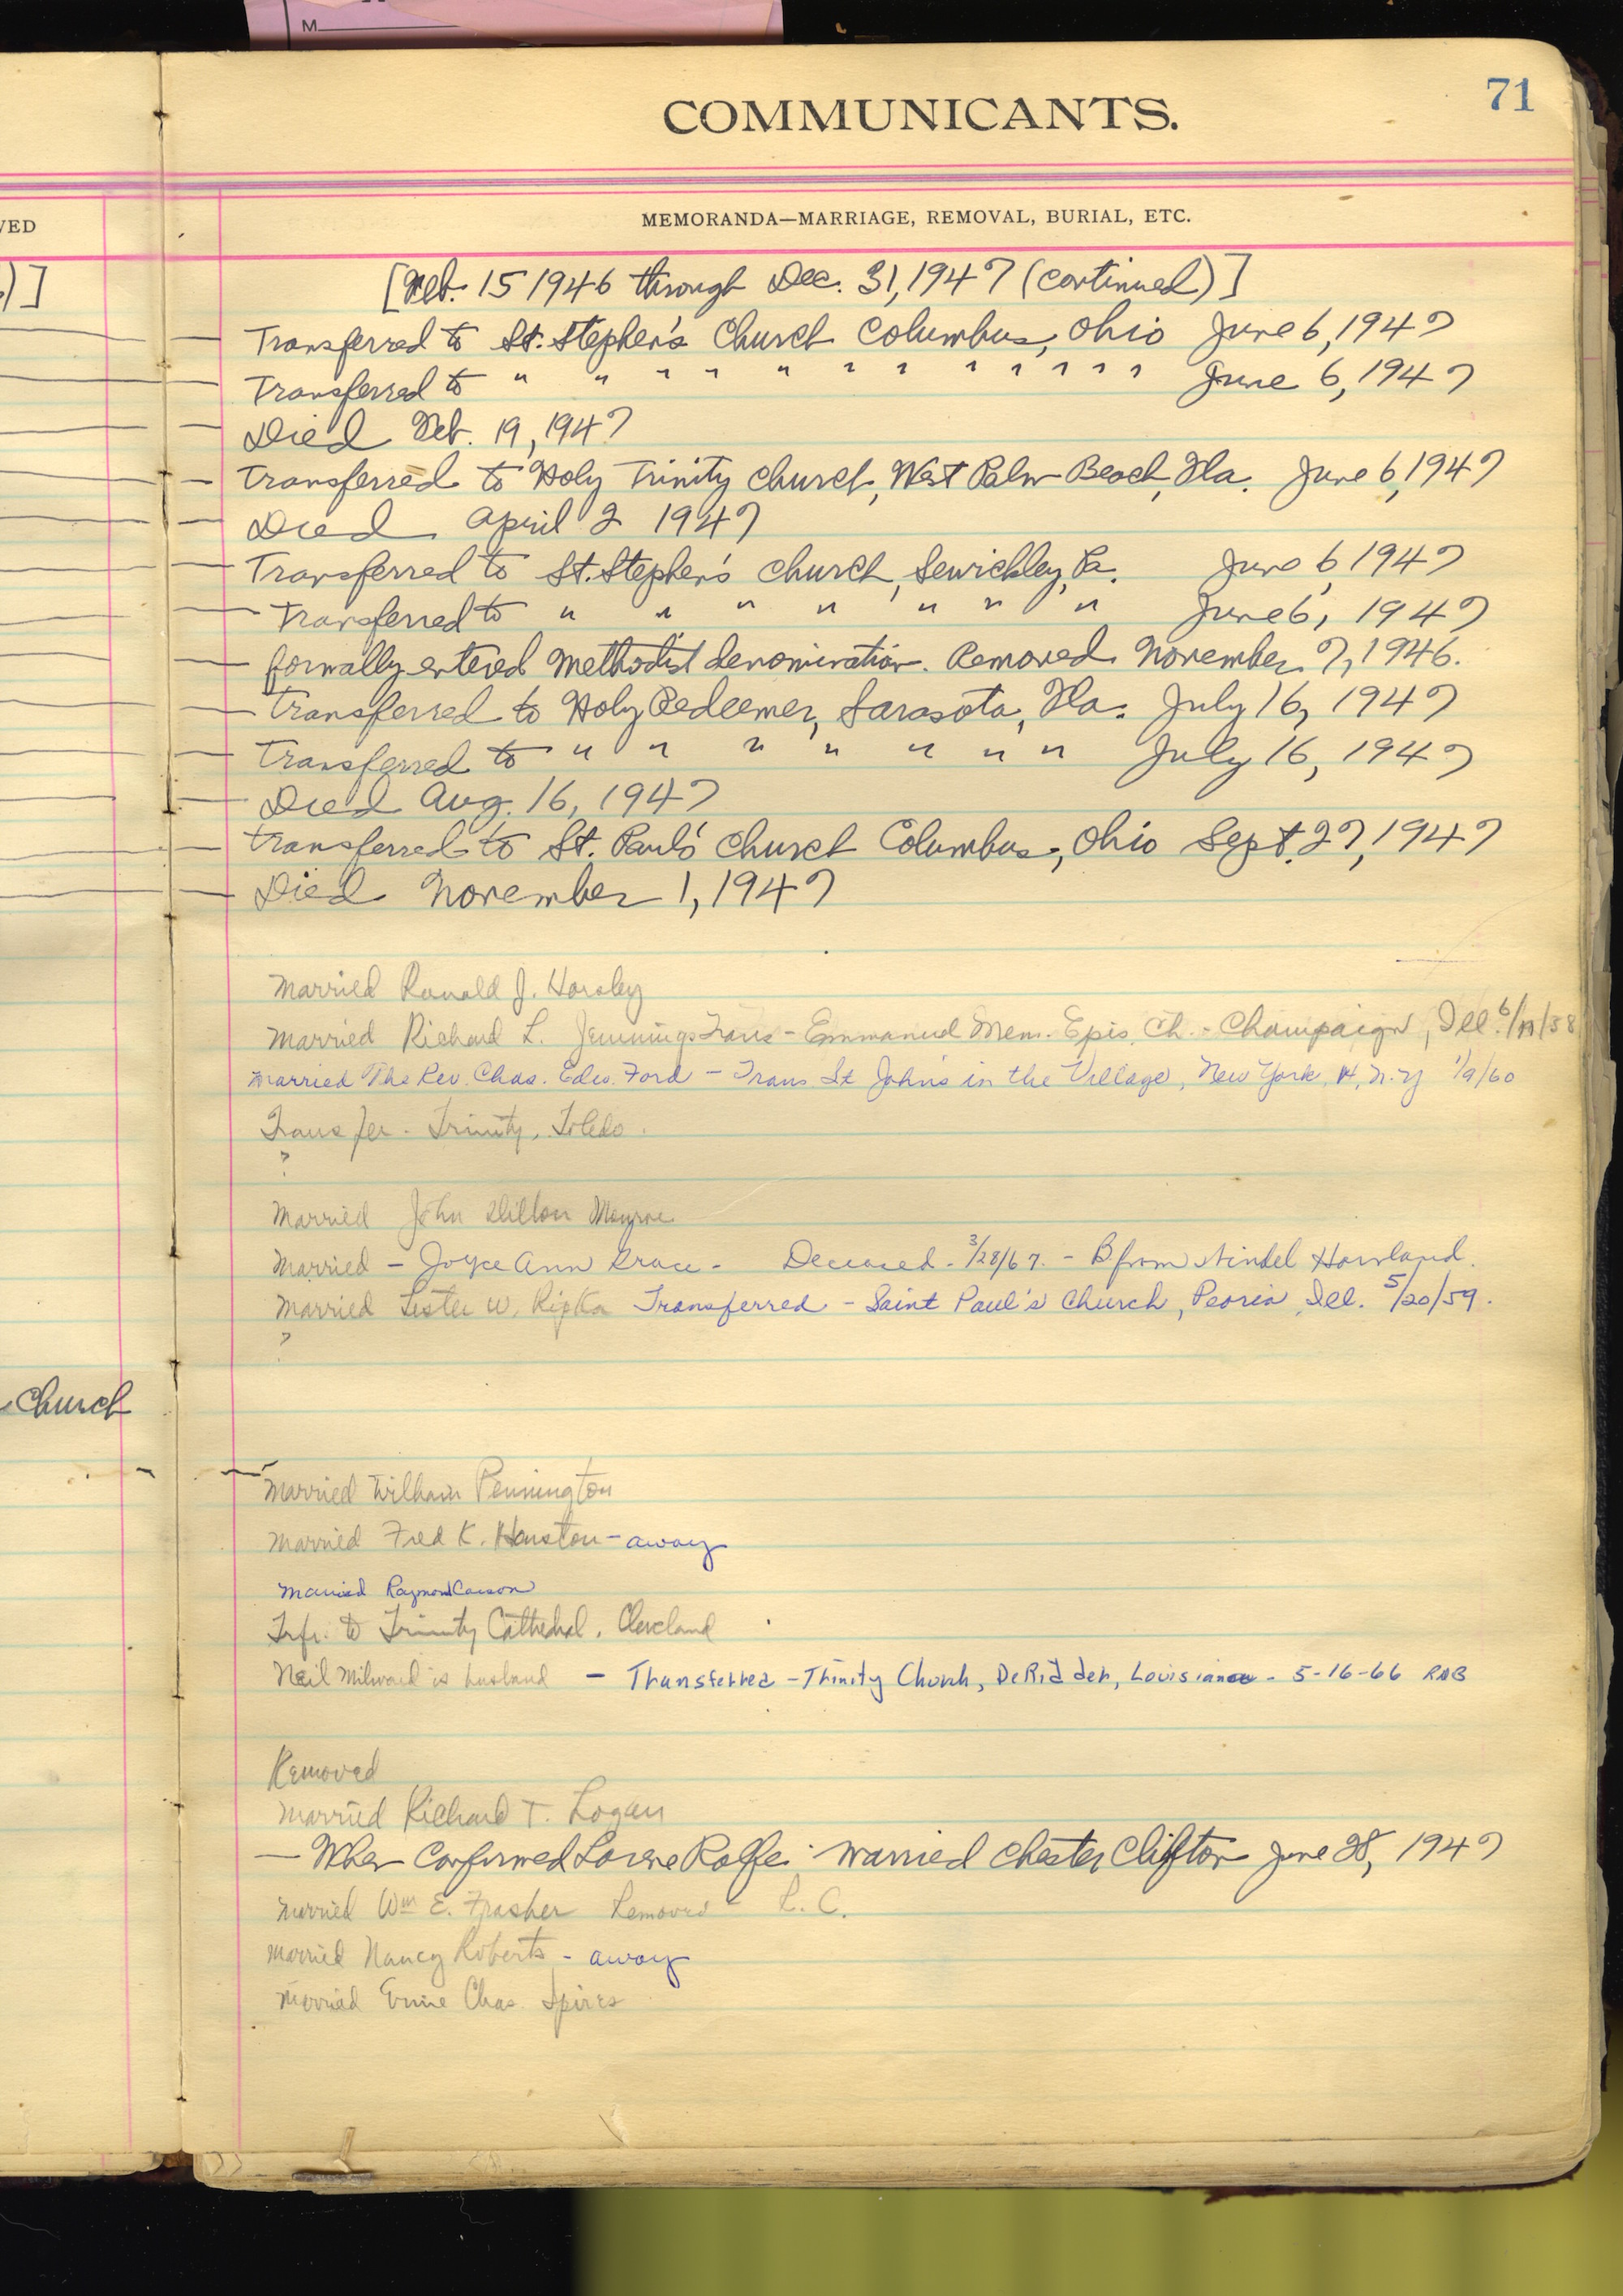 M
71
COMMUNICANTS.
VED
MEMORANDA—MARRIAGE, REMOVAL, BURIAL, ETC.
)]
[Feb. 15 1946 through Dec. 31, 1947 (continued)]
— Transferred to St. Stephen's Church Columbus, Ohio June 6, 1947
— Transferred to " " " " " " " " " " " " June 6, 1947
— Died Feb. 19, 1947
— Transferred to Holy Trinity Church, West Palm Beach, Fla. June 6, 1947
— Died April 2 1947
— Transferred to St. Stephen's Church, Sewickley, Pa. June 6, 1947
— Transferred to " " " " " " " June 6, 1947
— formally entered Methodist denomination. Removed November 7, 1946.
— Transferred to Holy Redeemer, Sarasota, Fla. July 16, 1947
— Transferred to " " " " " " " July 16, 1947
— Died Aug. 16, 1947
— Transferred to St. Paul's Church Columbus, Ohio Sept. 27, 1947
— Died November 1, 1947
Married Ronald J. Horsley
Married Richard L. Jennings Trans - Emmanuel Mem. Epis. Ch. - Champaign, Ill.
Married The Rev. Chas. Edw. Ford - Trans St John's in the Village, New York, N.Y 1/9/60
Transfer - Trinity, Toledo.
?
Married John Dillon Monroe
Married - Joyce Ann - Deceased - 3/28/67 - B from
Married Lester W. Ripka Transferred - Saint Paul's Church, Peoria, Ill. 5/20/59.
?
Church
Married William Pennington
Married Fred K. Houston - away
Married Raymond Carson
Trfr. to Trinity Cathedral, Cleveland
Neil Milward is husband - Transferred - Trinity Church, DeRidder, Louisiana - 5-16-66 RDB
Removed
Married Richard T. Logan
— When Confirmed Lorene Rolfe; married Chester Clifton June 28, 1947
Married Wm E. Frasher Removed - R. C.
Married Nancy Roberts - away
Married Ernie Chas. Spires